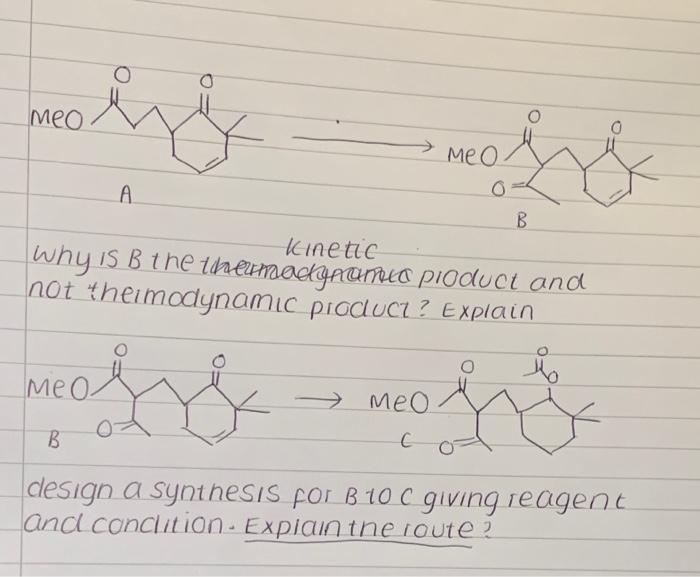 O O
MeO
A
O O
MeO
O
B
kinetic
why is B the thermodynamic product and
not thermodynamic product? Explain
O O
MeO
B O
O O
MeO O
C O
design a synthesis for B to C giving reagent
and condition. Explain the route?